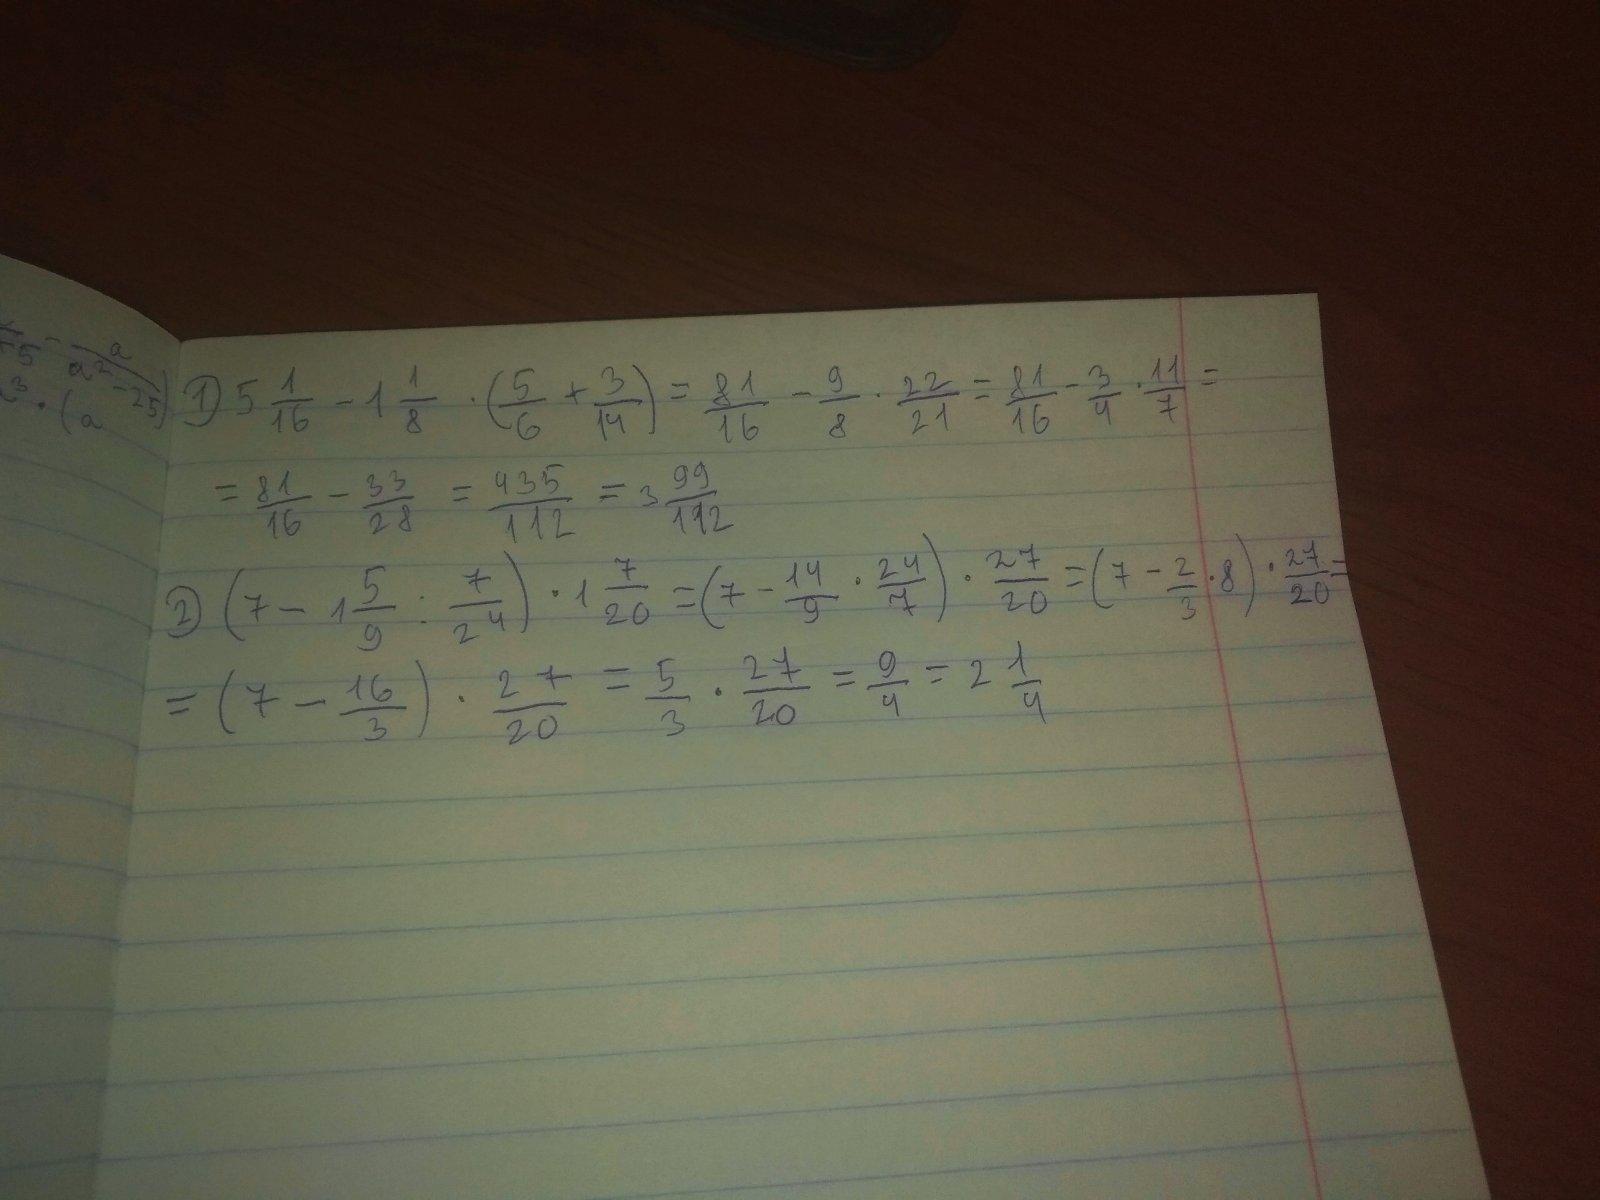 a / a² - 25)
³ · (a
1) 5 1/16 - 1 1/8 · (5/6 + 3/14) = 81/16 - 9/8 · 22/21 = 81/16 - 3/4 · 11/7 =
= 81/16 - 33/28 = 435/112 = 3 99/112
2) (7 - 1 5/9 : 7/24) · 1 7/20 = (7 - 14/9 · 24/7) · 27/20 = (7 - 2/3 · 8) · 27/20 =
= (7 - 16/3) · 27/20 = 5/3 · 27/20 = 9/4 = 2 1/4